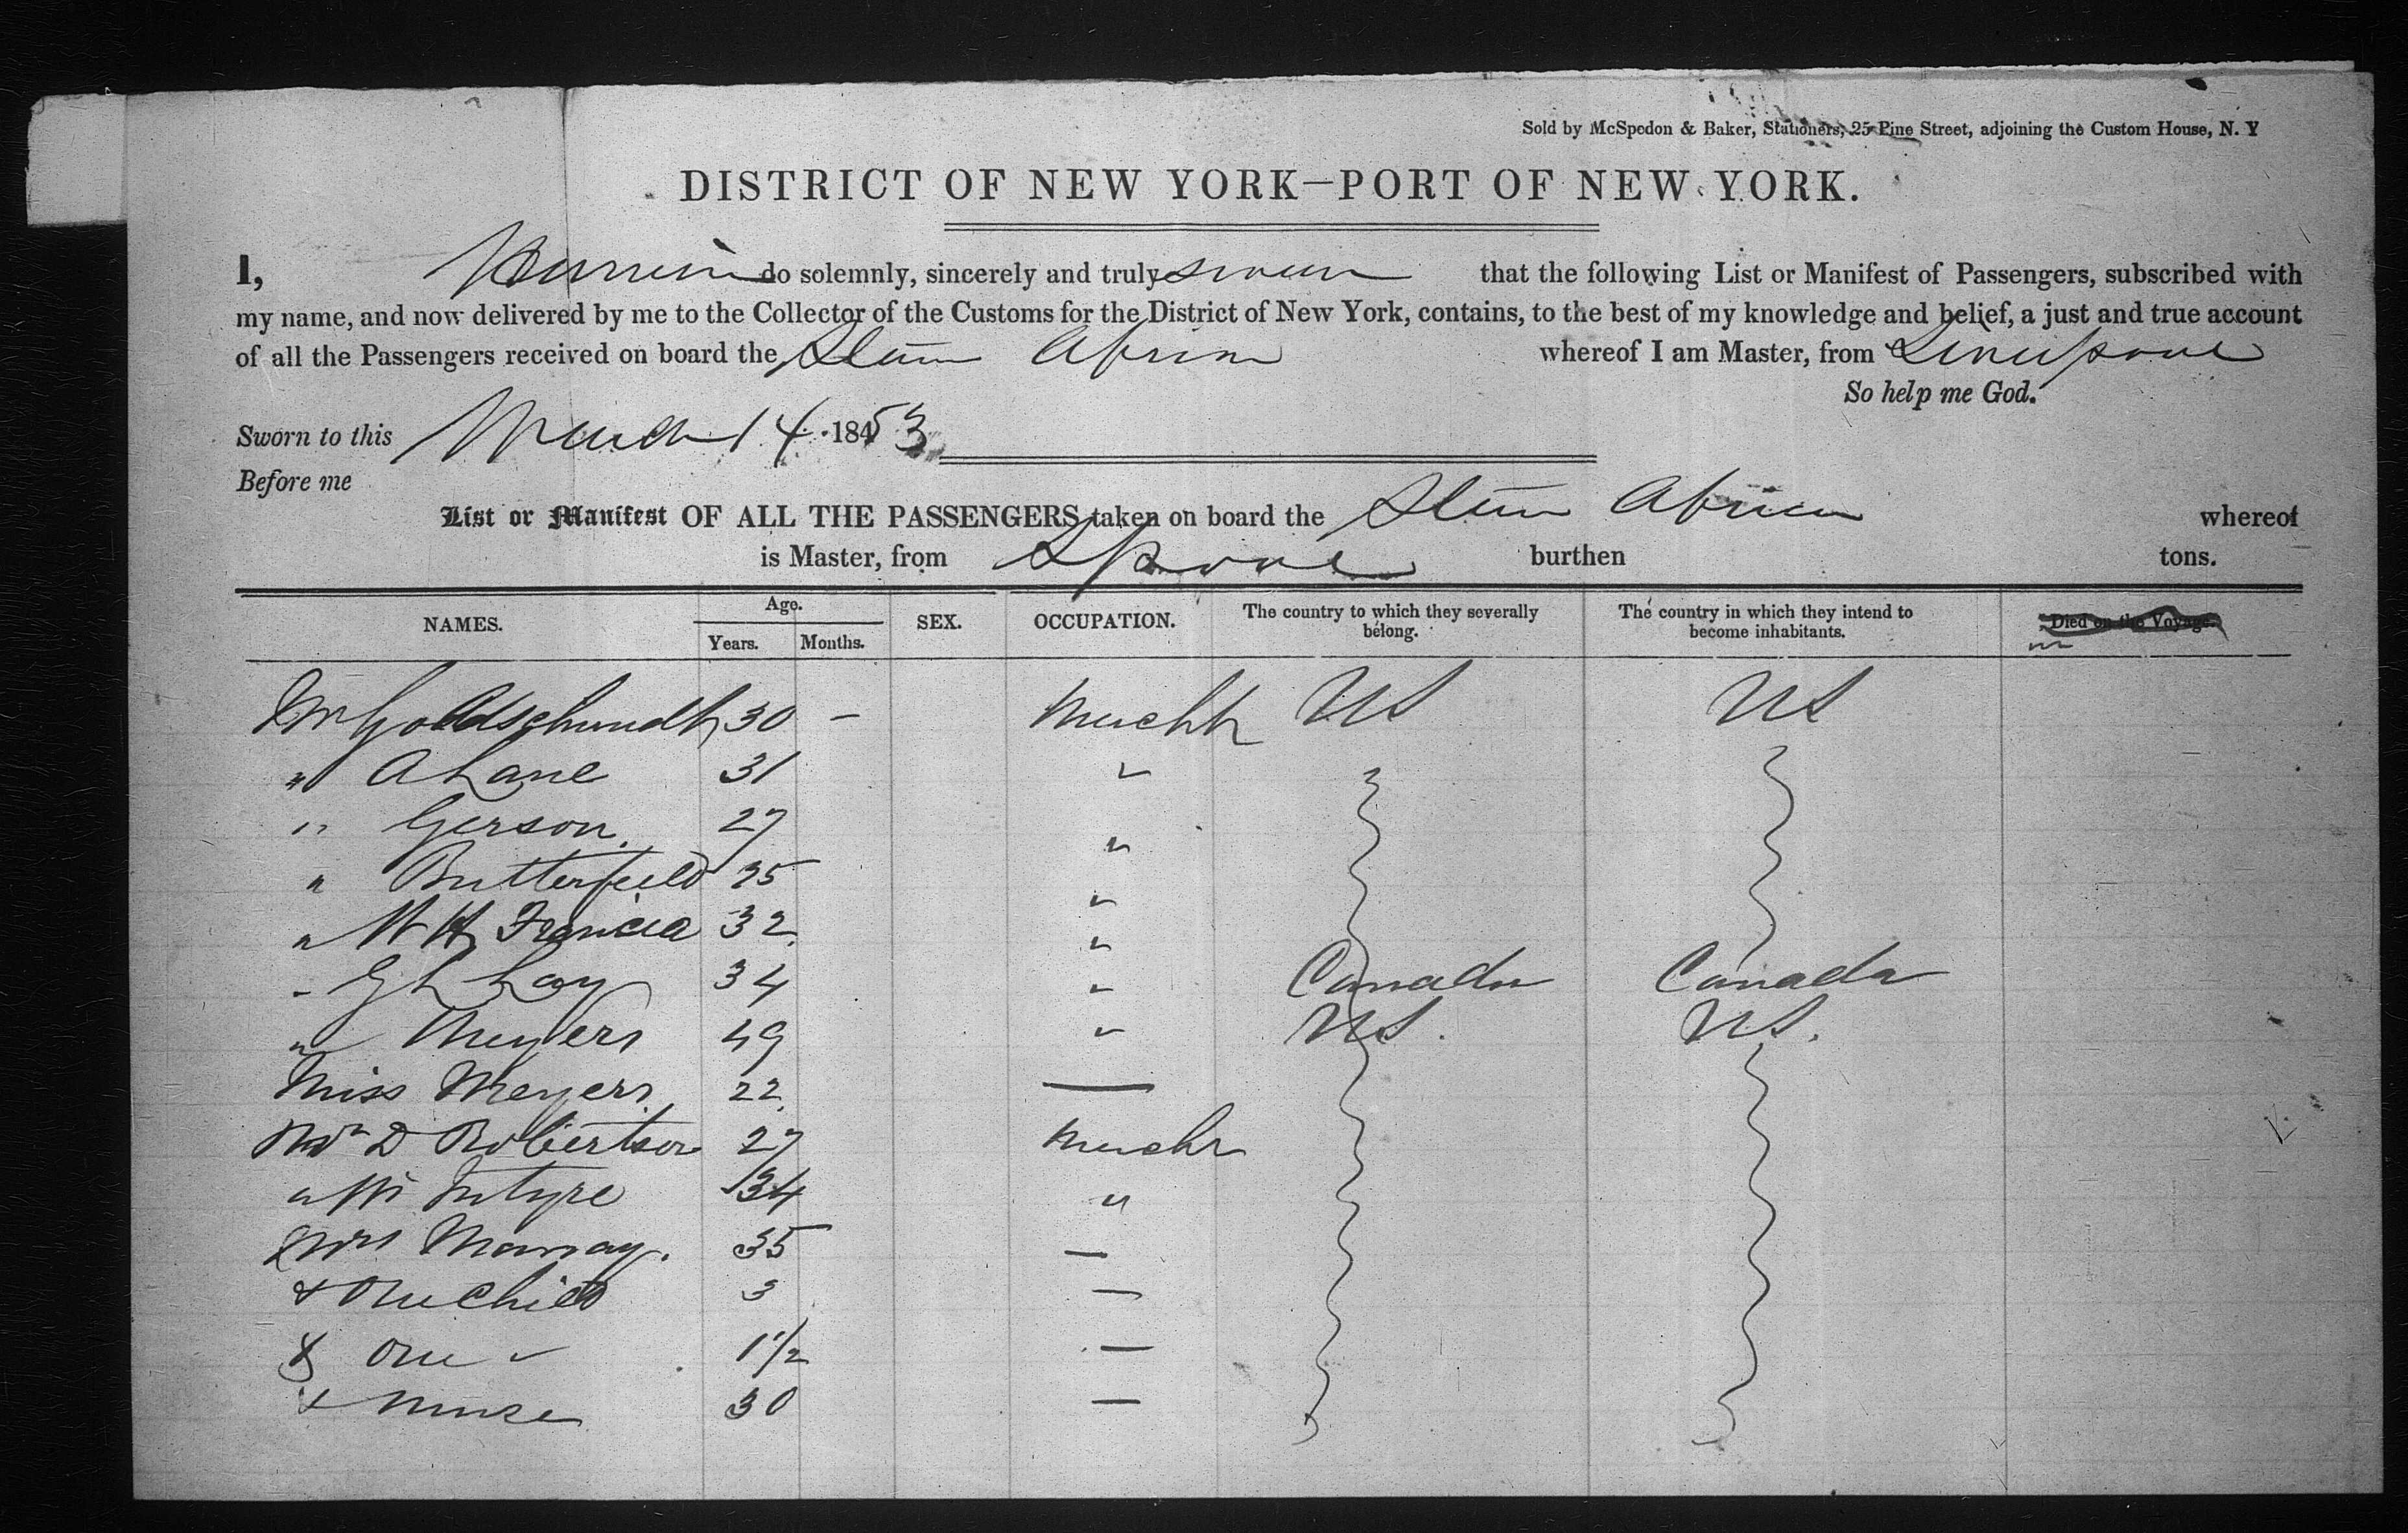 Sold by McSpedon & Baker, Stationers, 25 Pine Street, adjoining the Custom House, N. Y
DISTRICT OF NEW YORK—PORT OF NEW YORK.
I, do solemnly, sincerely and truly swear that the following List or Manifest of Passengers, subscribed with
my name, and now delivered by me to the Collector of the Customs for the District of New York, contains, to the best of my knowledge and belief, a just and true account
of all the Passengers received on board the Steam Africa whereof I am Master, from Liverpool
So help me God.
Sworn to this March 14 1853
Before me
List or Manifest OF ALL THE PASSENGERS taken on board the Steam Africa whereof
is Master, from Lpool burthen tons.
NAMES. Age. Years. Months. SEX. OCCUPATION. The country to which they severally belong. The country in which they intend to become inhabitants. Died on the Voyage.
Mr Goldschmidt 30 – Mercht US US
" A Lane 31 "
" Gerson 27 "
" Butterfield 25 "
" W H Francia 32 "
" G L Lay 34 " Canada Canada
" Meyers 49 " US. US.
Miss Meyers 22 —
Mr D Robertson 27 Mercht
" McIntyre 34 "
Mrs Murray. 35 —
& One Child 3 —
& One " 1½ —
& Nurse 30 —